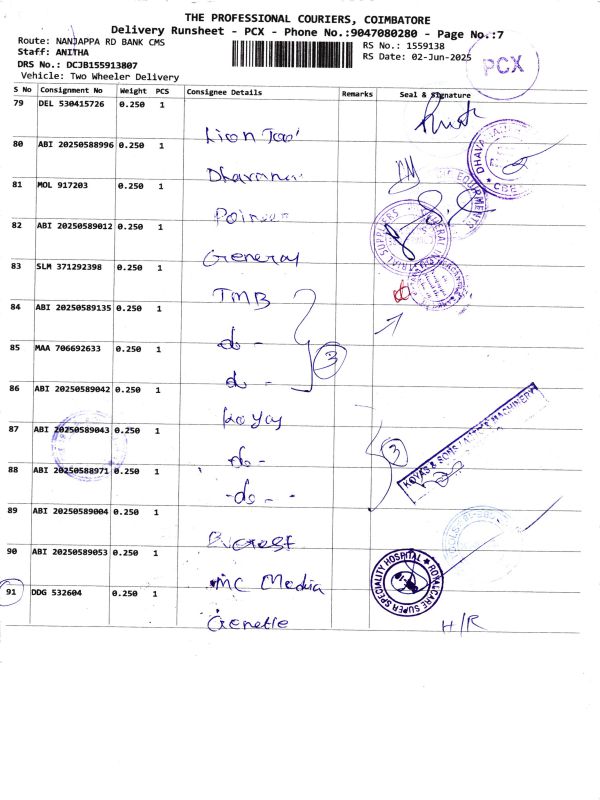 THE PROFESSIONAL COURIERS, COIMBATORE
Delivery Runsheet - PCX - Phone No.:9047080280 - Page No.:7
Route: NANJAPPA RD BANK CMS
RS No.: 1559138
Staff: ANITHA
RS Date: 02-Jun-2025
PCX
DRS No.: DCJB155913807
Vehicle: Two Wheeler Delivery
S No Consignment No Weight PCS Consignee Details Remarks Seal & Signature
79 DEL 530415726 0.250 1
Lion
80 ABI 20250588996 0.250 1
81 MOL 917203 0.250 1
82 ABI 20250589012 0.250 1
General
83 SLM 371292398 0.250 1
TMB
84 ABI 20250589135 0.250 1
do -
85 MAA 706692633 0.250 1
3
do -
86 ABI 20250589042 0.250 1
Koyas
87 ABI 20250589043 0.250 1
KOYAS & SONS MACHINERY
3
do -
88 ABI 20250588971 0.250 1
- do - -
89 ABI 20250589004 0.250 1
Everest
90 ABI 20250589053 0.250 1
ROYALCARE SUPER SPECIALITY HOSPITAL
MC Media
91 DDG 532604 0.250 1
Genetle
H/R